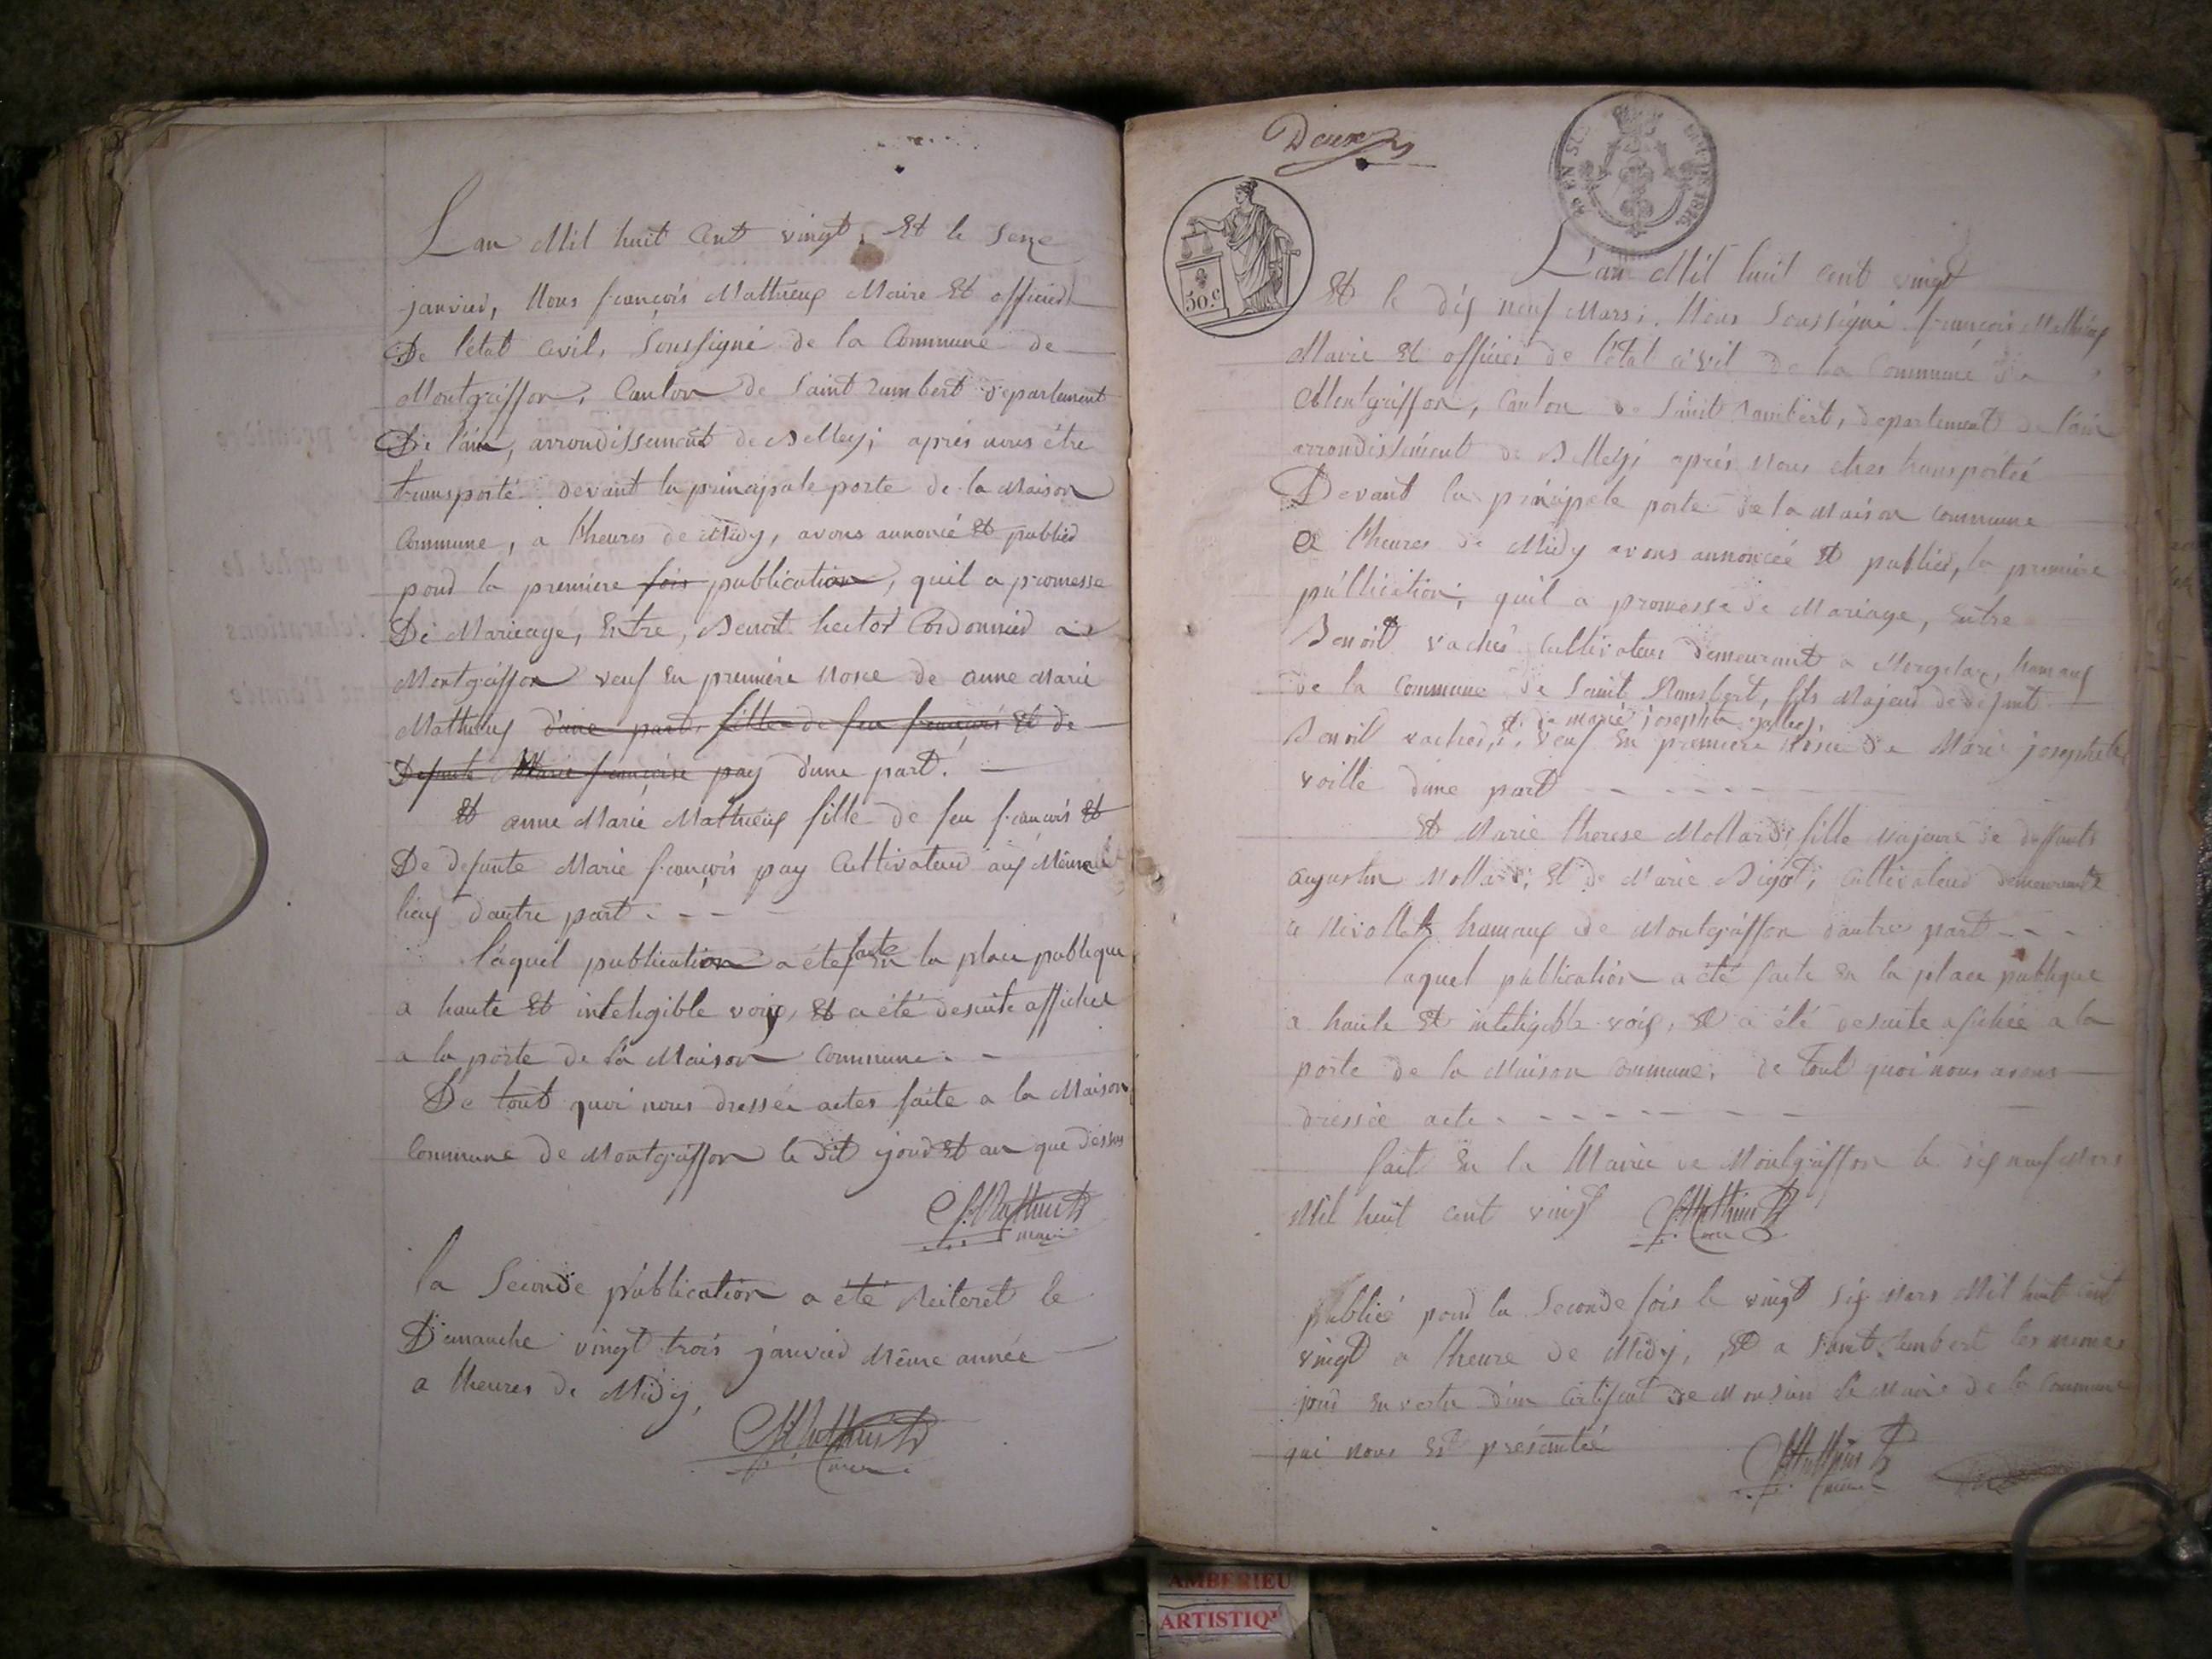 Lan Mil huit Cent vingt, Et le Seize
janvier, Nous françois Mathieux Maire Et officier
De létat Civil, Soussigné de la Commune de
Montgriffon, Canton de Saint Rambert departement
De lain, arrondissement de Belley; après nous être
transporté devant la principale porte de la Maison
Commune, a lheures de Midy, avons annoncé Et publier
pour la première fois publication, quil a promesse
De Marieage, Entre, Benoit hector Cordonnier a
Montgriffon veuf En première Nosce de anne Marie
Mathieux d'une part, fille de feu françois Et de
Defunte Marie françoise pay d'une part.
Et anne Marie Mathieux fille de feu françois Et
De defunte Marie françois pay Cultivateur aux Même
lieux dautre part
laquel publication a été faite En la place publique
a haute Et inteligible voix, Et a été desuite afficher
a la porte de la Maison Commune.
De tout quoi nous dressée actes faite a la Maison
Commune de Montgriffon le dit jour Et an que dessus
Mathieux
maire
la Seconde publication a été Reiteret le
Dimanche vingt trois janvier Même année
a lheures de Midy,
Mathieux
maire
Deux
50.c
L'an Mil huit Cent vingt
Et le dix neuf Mars; Nous Soussigné françois Mathieux
Maire Et officier de l'état civil de la Commune de
Montgriffon, Canton de Saint Rambert, departement de l'ain
arrondissement de Belley; après Nous etres transportée
Devant la principale porte de la Maison Commune
a lheures de Midy avons annoncée Et publier, la première
publication; quil a promesse de Mariage, Entre
Benoit vacher Cultivateur demeurant a hamaux
de la Commune de Saint Rambert, fils Majeur de defunt
et de marie josephte
Benoit vacher, veuf En première Nosce de Marie josephte
voille d'une part
Et Marie therese Mollard; fille Majeure de deffunts
augustin Mollard; Et de Marie Bigot; Cultivateur demeurant
a Nivollet hamaux de Montgriffon dautre part
laquel publication a été faite En la place publique
a haute Et inteligible voix, Et a été desuite afichée a la
porte de la Maison Commune, de tout quoi nous avons
dressée acte
fait En la Mairie de Montgriffon le dix neuf Mars
Mil huit cent vingt Mathieux
maire
publié pour la Seconde fois le vingt Six Mars Mil huit cent
vingt a lheure de Midy, Et a Saint Rambert les memes
jour En vertu d'un Certificat de Monsieur le Maire de la Commune
qui nous Est présentée
Mathieux
maire
AMBERIEU
ARTISTIQ